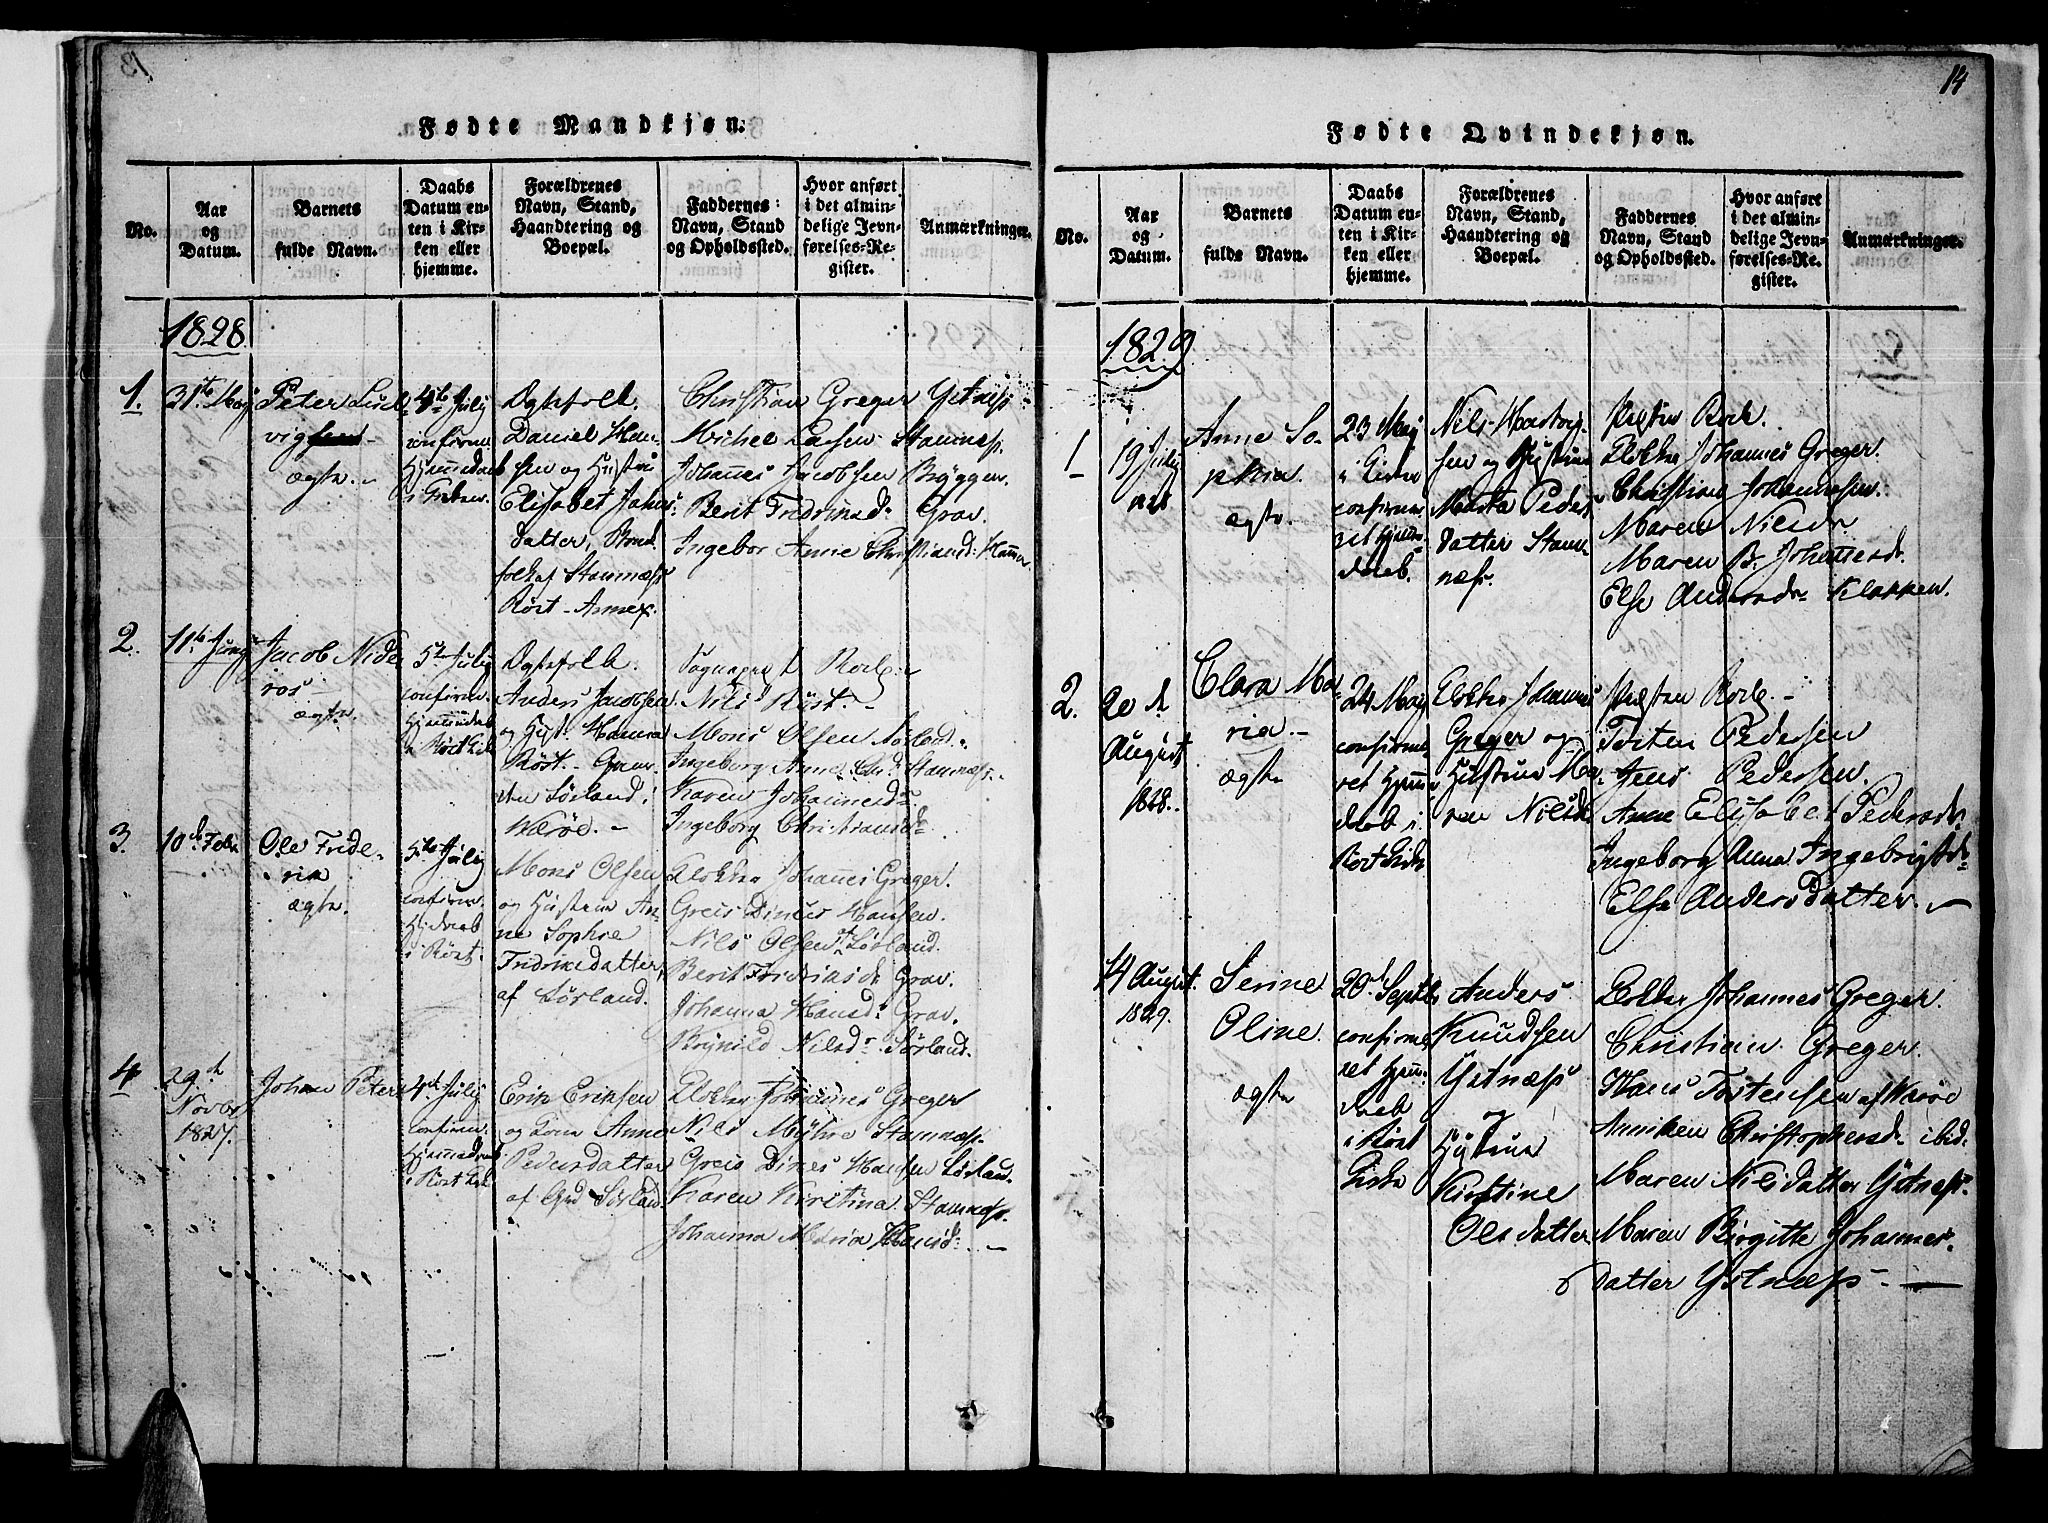 13
Fødte Mandkjøn.
No.
Aar
og
Datum.
Barnets
fulde Navn.
Daabs
Datum en-
ten i Kir-
ken eller
hjemme.
Forældrenes
Navn, Stand,
Haandtering og
Boepæl.
Faddernes
Navn, Stand
og Opholdssted.
Hvor anført
i det almin-
delige Jevn-
førelses-Re-
gister.
Anmærkninger.
1828
1.
31te May
Peter Lud-
vig
ægte.
4de July
confirme
Hjemmedaab
i Kirken.
Ægtefolk.
Daniel Han-
sen og Hustru
Elisabet Johans-
datter, Bond
folk af Stamnæss
Röst-Annex.
Christian Greger Ystnæss
Michel Larsen Stamnæss.
Johannes Jacobsen Bryggen.
Berit Fridrinsd: Grav.
Ingebor Anne Christiansd: Hammer
2.
11te Juny
Jacob Nide
ros
ægte.
5te July
confirm.
Hjemmedaab
i Röst Kirk
Ægtefolk.
Anders Jacobsen
og Hust. Hanna
Röst-
den Sørland.
Værøe.
Sognepræst Rode
Nils Röst.
Mons Olsen Sørland.
Ingeborg Anne Chrd. Stamnæss.
Karen Johannesd:
Ingeborg Christiansd:
3.
10de Febr
Ole Fride-
rik
ægte.
5te July
confirm.
Hj daab
i Röst.
Mons Olsen
og Hustrue An-
ne Sophie
Fridriksdatter
af Sørland.
Klokker Johannes Greger.
Greis Dines Hansen.
Nils Olsen Sørland.
Berit Fridriksd. Grav.
Johanna Hansd: Grav.
Brynild Nilsdr Sørland.
4
29de
Novbr
1827.
Johan Peter
4de July
confirm.
Hjemmedaab
i Röst Kirk
Erik Eriksen
og Kone Anne
Pedersdatter
af Grd Sørland.
Klokker Johannes Greger
Nils Myhre Stamnæss.
Greis Dines Hansen Sørland.
Karen Kirstina Stamnæss.
Johanna Maria Hansd:
14
Fødte Qvindekjøn.
No.
Aar
og
Datum.
Barnets
fulde Navn.
Daabs
Datum en-
ten i Kir-
ken eller
hjemme.
Forældrenes
Navn, Stand,
Haandtering og
Boepæl.
Faddernes
Navn, Stand
og Opholdssted.
Hvor anført
i det almin-
delige Jevn-
førelses-Re-
gister.
Anmærkninger.
1829
1
19 July
1828
Anne So-
phia.
ægte.
23 May
i Kirken
confirme-
ret Hjemme-
daab.
Nils Hartvig-
sen og Hustrue
Marta Peders
datter Stam-
næss.
Præsten Rode.
Klokker Johannes Greger.
Christian Johannesen.
Maren Nilsdr
Maren B. Johannesd.
Else Andersdr Klakken.
2.
20de
August
1828.
Clara Ma-
ria.
ægte
24 May
confirme-
ret Hjemme
daab i
Röst Kirke
Klokker Johannes
Greger og
Hustrue Ma-
ren Nilsdr
Præsten Rode
Torsten Pedersen
Jens Pedersen.
Anne Elisabet Pedersdr
Ingeborg Anna Ingebrigtsdr
Else Andersdatter.
14 August
1829.
Serine
Oline.
ægte
20de Septbr
confirme
ret Hjemme-
daab
i Röst
Kirke
Anders
Knudsen
Ystnæss
og
Hustrue
Kirstine
Olsdatter
Klokker Johannes Greger.
Christian Greger.
Hans Torstensen af Værøe
Anniken Christophersd. ibid.
Maren Nilsdatter Ystnæss.
Maren Birgitte Johannes-
datter Ystnæss.